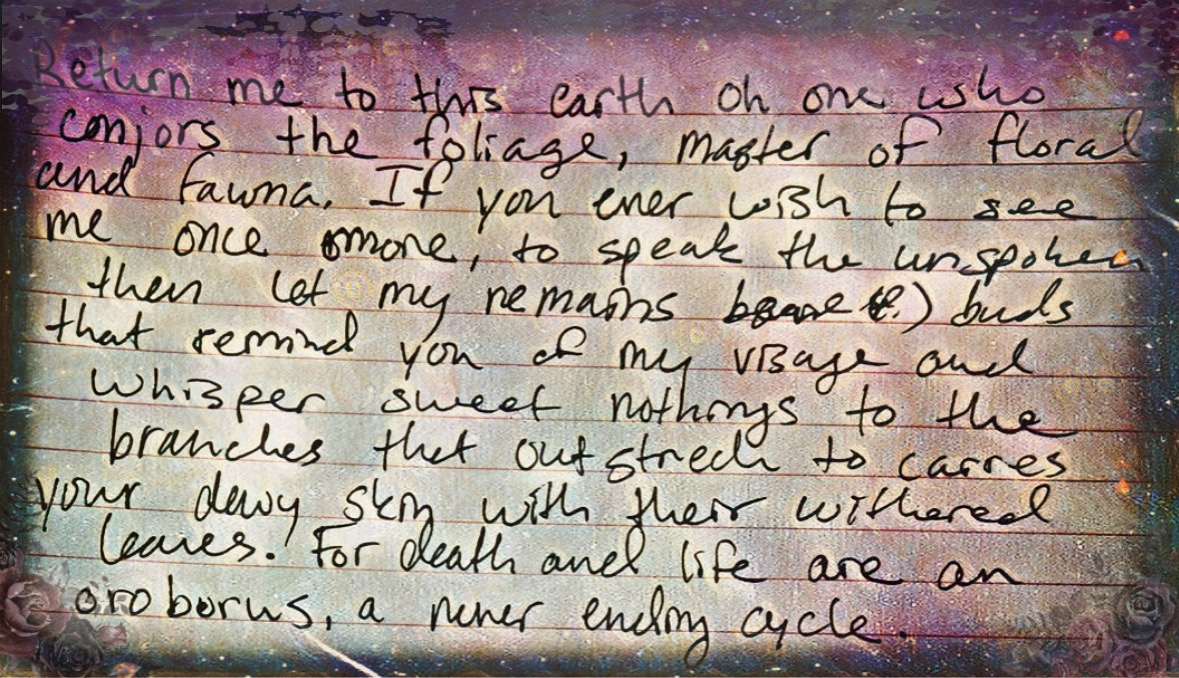 Return me to this earth oh one who
conjors the foliage, master of floral
and fauna. If you ever wish to see
me once more, to speak the unspoken
then let my remains buds
that remind you of my visage and
whisper sweet nothings to the
branches that outstrech to carres
your dewy skin with their withered
leaves. For death and life are an
oroborus, a never ending cycle.